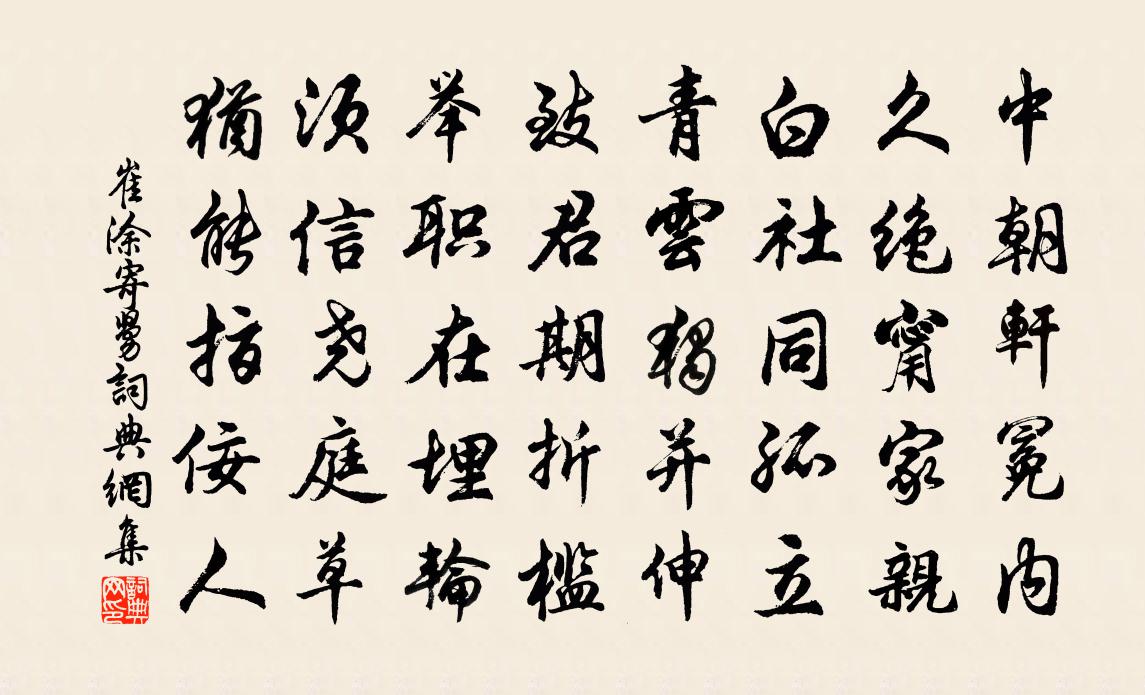 中朝軒冕內
久絕甯家親
白社同孤立
青雲獨并伸
致君期折檻
举职在埋輪
須信尧庭草
猶能指佞人
崔涂寄舅詞典網集
詞典网印